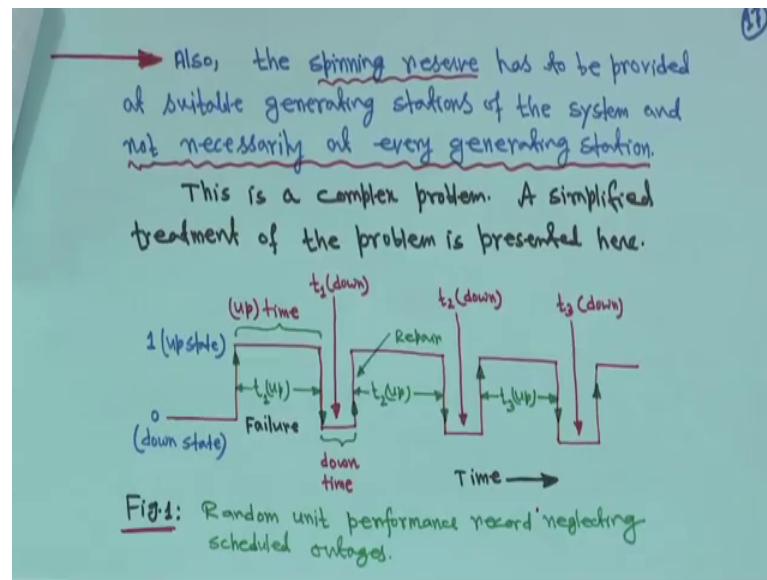 17
Also, the spinning reserve has to be provided
at suitable generating stations of the system and
not necessarily at every generating station.
This is a complex problem. A simplified
treatment of the problem is presented here.
t1(down)
t2(down)
t3(down)
(up) time
1 (up state)
Repair
t1(up)
t2(up)
t3(up)
0
(down state)
Failure
down
time
Time
Fig.1: Random unit performance record neglecting
scheduled outages.